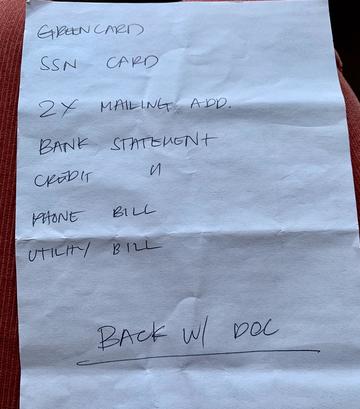 GREENCARD
SSN CARD
2X MAILING ADD.
BANK STATEMENT
CREDIT "
PHONE BILL
UTILITY BILL
BACK W/ DOC